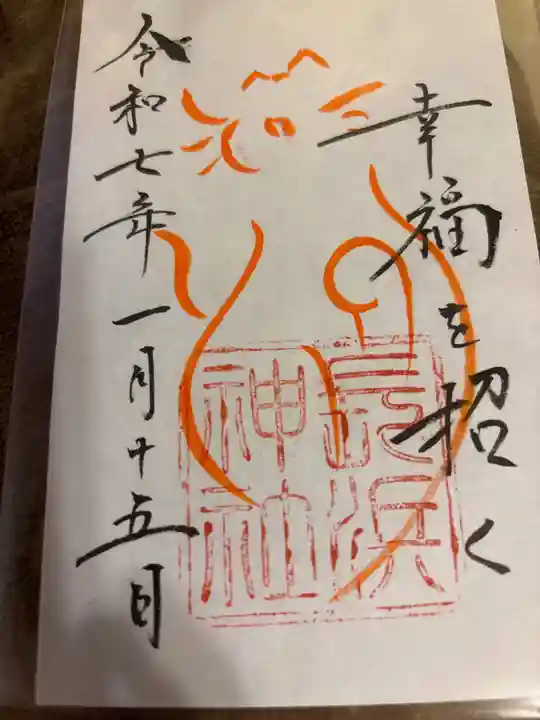 幸福を招く
長浜
神社
令和七年一月十五日